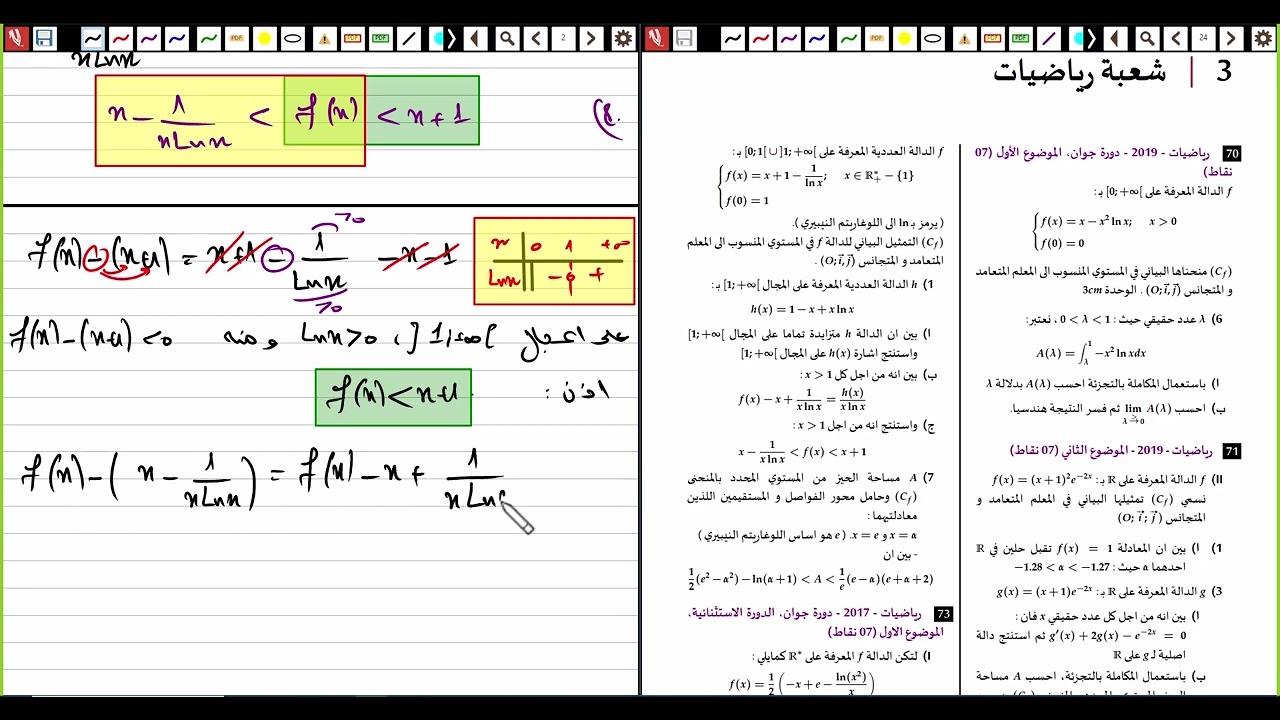 x Ln x
x - 1/(x Ln x) < f(x) < x + 1
(8.
f(x) - (x+1) = x+1 - 1/Ln x - x - 1
>0
>0
x 0 1 +∞
Ln x - 0 +
على المجال ]1,+∞[ , Ln x > 0 ومنه f(x) - (x+1) < 0
اذن : f(x) < x+1
f(x) - ( x - 1/(x Ln x) ) = f(x) - x + 1/(x Ln
2
24
3 | شعبة رياضيات
70 رياضيات - 2019 - دورة جوان، الموضوع الأول (07
نقاط)
f الدالة المعرفة على [0;+∞[ بـ:
f(x) = x − x² ln x; x > 0
f(0) = 0
(Cf) منحناها البياني في المستوي المنسوب الى المعلم المتعامد
و المتجانس (O; i, j) . الوحدة 3cm
6) λ عدد حقيقي حيث : 0 < λ < 1 ، نعتبر:
A(λ) = ∫_λ^1 −x² ln x dx
ا) باستعمال المكاملة بالتجزئة احسب A(λ) بدلالة λ
ب) احسب lim A(λ) ثم فسر النتيجة هندسيا.
λ→0
71 رياضيات - 2019 - الموضوع الثاني (07 نقاط)
II) f الدالة المعرفة على ℝ بـ: f(x) = (x + 1)²e^−2x
نسعي (Cf) تمثيلها البياني في المعلم المتعامد و
المتجانس (O; i ; j)
1) ا) بين ان المعادلة f(x) = 1 تقبل حلين في ℝ
احدهما α حيث : −1.28 < α < −1.27
3) g الدالة المعرفة على ℝ بـ: g(x) = (x + 1)e^−2x
ا) بين انه من اجل كل عدد حقيقي x فان :
g′(x) + 2g(x) − e^−2x = 0 ثم استنتج دالة
اصلية لـ g على ℝ
ب) باستعمال المكاملة بالتجزئة، احسب A مساحة
f الدالة العددية المعرفة على [0;1[∪]1;+∞[ بـ:
f(x) = x + 1 − 1/ln x; x ∈ ℝ*₊ − {1}
f(0) = 1
(يرمز بـ ln الى اللوغاريتم النيبيري).
(Cf) التمثيل البياني للدالة f في المستوي المنسوب الى المعلم
المتعامد و المتجانس (O; i, j) .
1) h الدالة العددية المعرفة على المجال [1;+∞[ بـ:
h(x) = 1 − x + x ln x
ا) بين ان الدالة h متزايدة تماما على المجال [1;+∞[
واستنتج اشارة h(x) على المجال [1;+∞[
ب) بين انه من اجل كل x > 1 :
f(x) − x + 1/(x ln x) = h(x)/(x ln x)
ج) واستنتج انه من اجل x > 1 :
x − 1/(x ln x) < f(x) < x + 1
7) A مساحة الحيز من المستوي المحدد بالمنحنى
(Cf) وحامل محور الفواصل و المستقيمين اللذين
معادلتيهما :
x = α و x = e. (e هو اساس اللوغاريتم النيبيري )
- بين ان
1/2(e² − α²) − ln(α + 1) < A < 1/e(e − α)(e + α + 2)
73 رياضيات - 2017 - دورة جوان، الدورة الاستثنائية،
الموضوع الاول (07 نقاط)
I) لتكن الدالة f المعرفة على ℝ* كمايلي :
f(x) = 1/2(−x + e − ln(x²)/x)